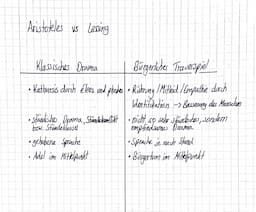 Aristoteles vs Lessing
Klassisches Drama
Bürgerliches Trauerspiel
• Katharsis durch Eleos und phobos
• ständisches Drama, Ständeklausel
• gehobene Sprache
• Adel im Mittelpunkt
• Rührung / Mitleid / Empathie durch
Identifikation → Besserung des Menschen
• nicht so sehr ständisch, sondern
Drama
• Sprache je nach Stand
• Bürgertum im Mittelpunkt